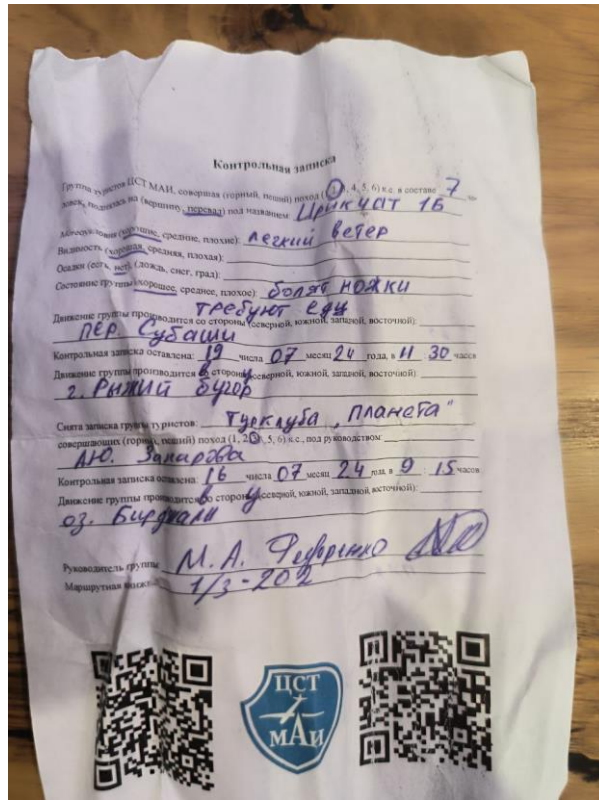 Контрольная записка
Группа туристов ЦСТ МАИ, совершая (горный, пеший) поход ( 3, 4, 5, 6) к.с. в составе 7 че-
ловек, поднялась на (вершину, перевал) под названием: Ирикчат 1Б
Метеоусловия (хорошие, средние, плохие): легкий ветер
Видимость (хорошая, средняя, плохая):
Осадки (есть, нет), (дождь, снег, град):
Состояние группы (хорошее, среднее, плохое): болят ножки
требуют еды
Движение группы производится со стороны (северной, южной, западной, восточной):
пер. Субаши
Контрольная записка оставлена: 19 числа 07 месяц 24 года, в 11 30 часов
Движение группы производится в сторону (северной, южной, западной, восточной):
г. Рыжий бугор
Снята записка группы туристов: Турклуба „Планета"
совершающих (горный, пеший) поход (1, 2, 3, 5, 6) к.с., под руководством:
А.Ю. Запарова
Контрольная записка оставлена: 16 числа 07 месяц 24 года, в 9 : 15 часов
Движение группы производится в сторону (северной, южной, западной, восточной):
оз. Бирджали
Руководитель группы М. А. Федоренко
Маршрутная книжка 1/3-202
ЦСТ
МАИ